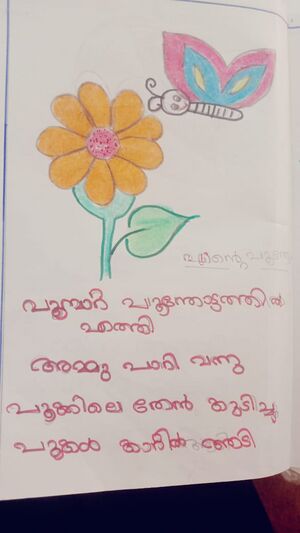 എന്റെ പൂന്തോ
പൂമ്പാറ്റ പൂന്തോട്ടത്തിൽ
എത്തി
അമ്മു പാറി വന്നു
പൂക്കിലെ തേൻ കുടിച്ചു
പൂക്കൾ കാറ്റിൽ ആടി